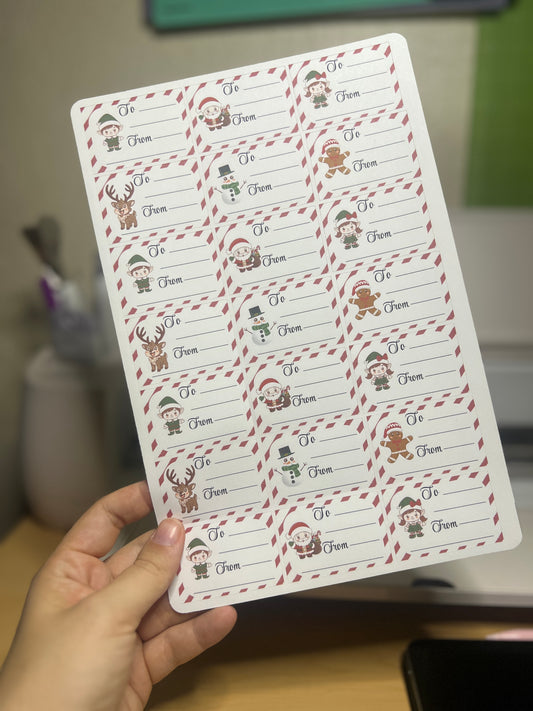 To
From
To
From
To
From
To
From
To
From
To
From
To
From
To
From
To
From
To
From
To
From
To
From
To
From
To
From
To
From
To
From
To
From
To
From
To
From
To
From
To
From